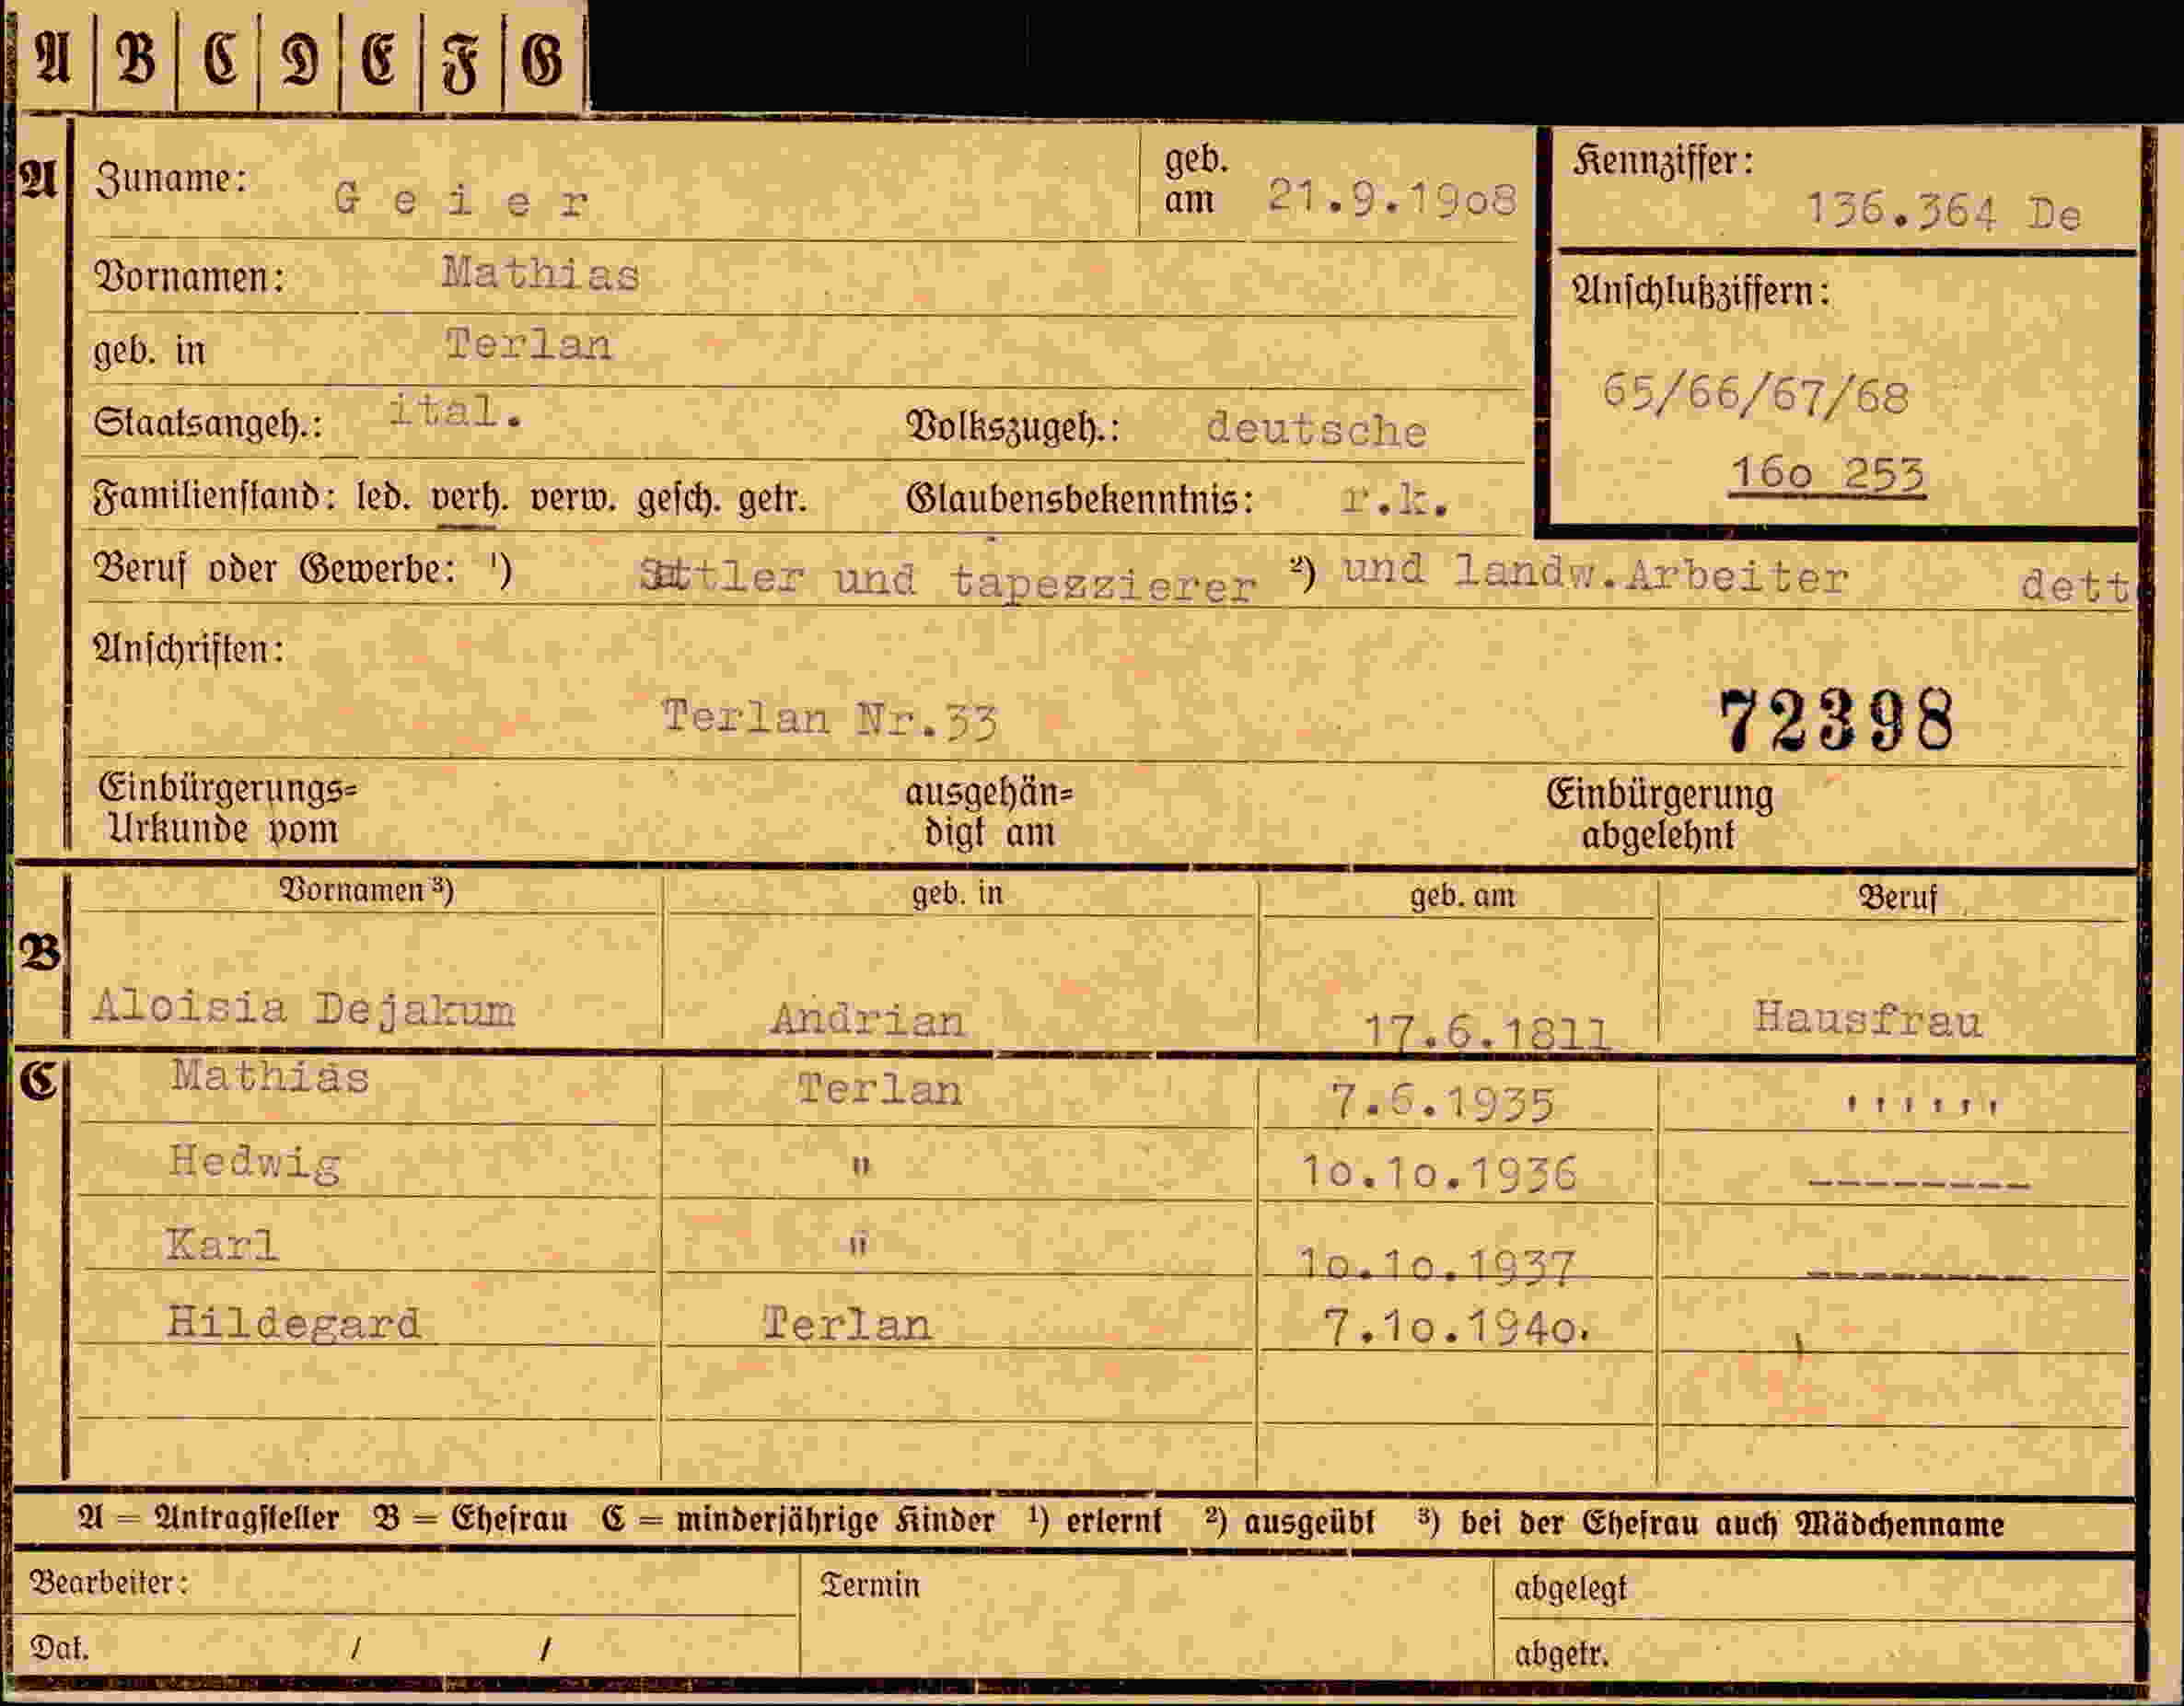 A B C D E F G
A Zuname: Geier geb. am 21.9.1908 Kennziffer: 136.364 De
Vornamen: Mathias Anschlußziffern:
geb. in Terlan 65/66/67/68
Staatsangeh.: ital. Volkszugeh.: deutsche 160 253
Familienstand: led. verh. verw. gesch. getr. Glaubensbekenntnis: r.k.
Beruf oder Gewerbe: ¹) Sattler und tapezzierer ²) und landw.Arbeiter dett
Anschriften:
Terlan Nr.33 72398
Einbürgerungs= ausgehän= Einbürgerung
Urkunde vom digt am abgelehnt
Vornamen ³) geb. in geb. am Beruf
B
Aloisia Dejakum Andrian 17.6.1811 Hausfrau
C Mathias Terlan 7.6.1935 ''''''
Hedwig " 10.10.1936 --------
Karl " 10.10.1937 --------
Hildegard Terlan 7.10.1940.
A = Antragsteller B = Ehefrau C = minderjährige Kinder ¹) erlernt ²) ausgeübt ³) bei der Ehefrau auch Mädchenname
Bearbeiter: Termin abgelegt
Dat. / / abgetr.